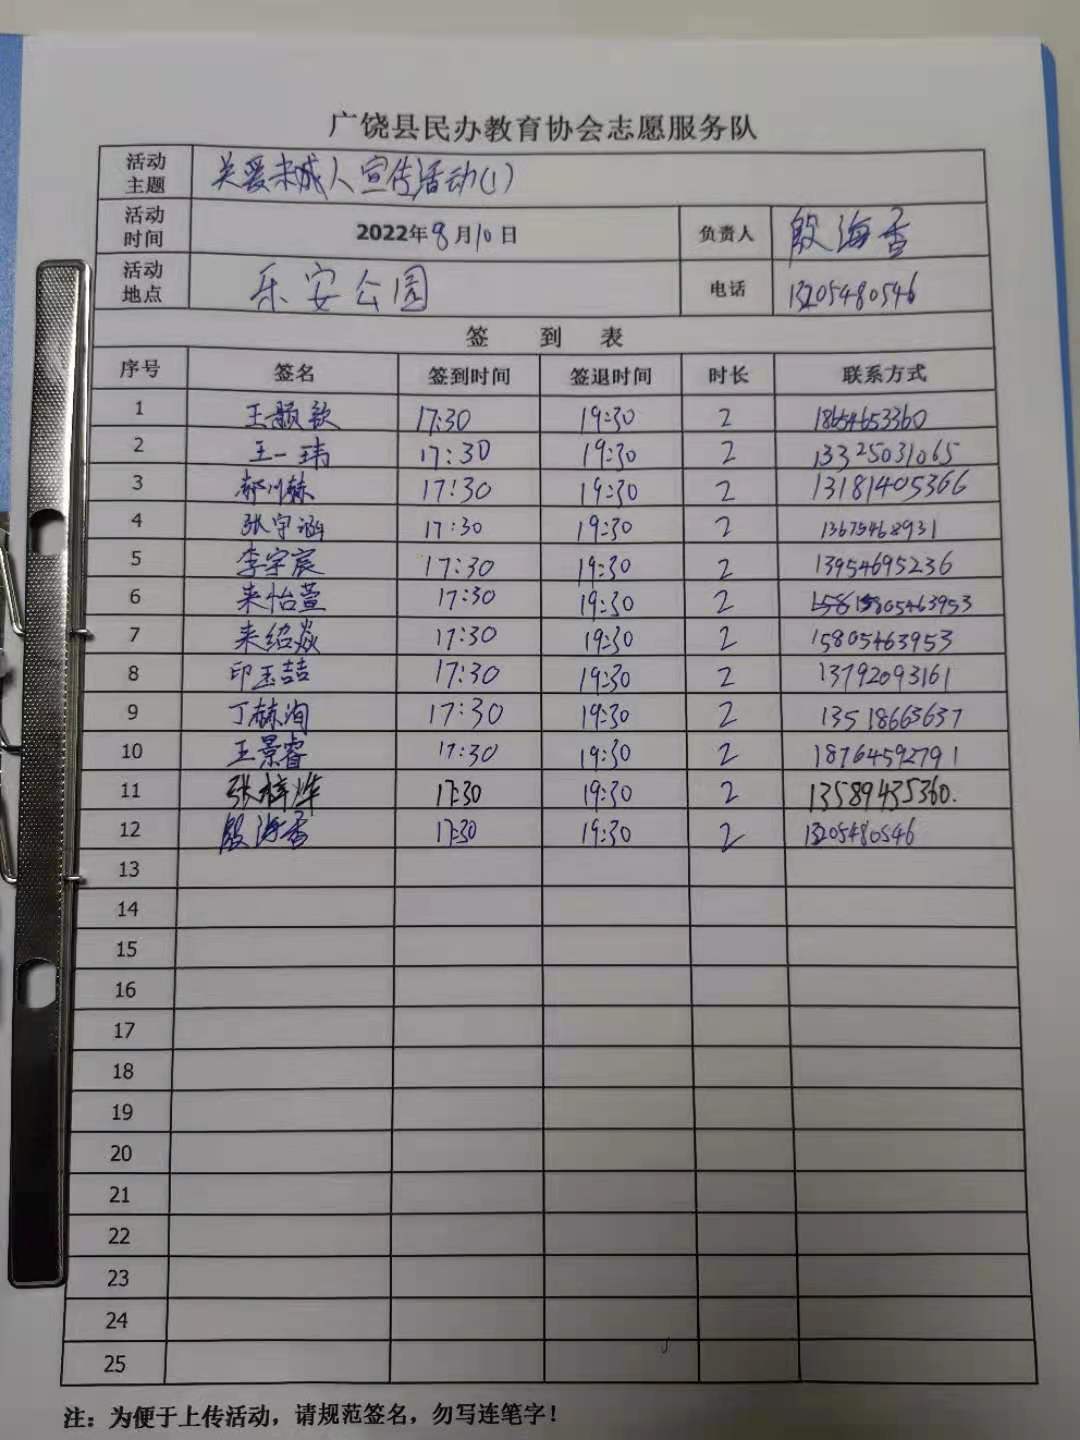 广饶县民办教育协会志愿服务队
活动主题 关爱未成人宣传活动(1)
活动时间 2022年8月10日 负责人 殷海香
活动地点 乐安公园 电话 13205480546
签 到 表
序号 签名 签到时间 签退时间 时长 联系方式
1 王颢钦 17:30 19:30 2 18654653360
2 王一玮 17:30 19:30 2 13325031065
3 郝川赫 17:30 19:30 2 13181405366
4 张宇涵 17:30 19:30 2 13675468931
5 李宇宸 17:30 19:30 2 13954695236
6 来怡萱 17:30 19:30 2 15805463953
7 来绍焱 17:30 19:30 2 15805463953
8 印玉喆 17:30 19:30 2 13792093161
9 丁赫洵 17:30 19:30 2 13518663637
10 王景睿 17:30 19:30 2 18764592791
11 张梓烨 17:30 19:30 2 13589435360.
12 殷海香 17:30 19:30 2 13205480546
13
14
15
16
17
18
19
20
21
22
23
24
25
注：为便于上传活动，请规范签名，勿写连笔字！